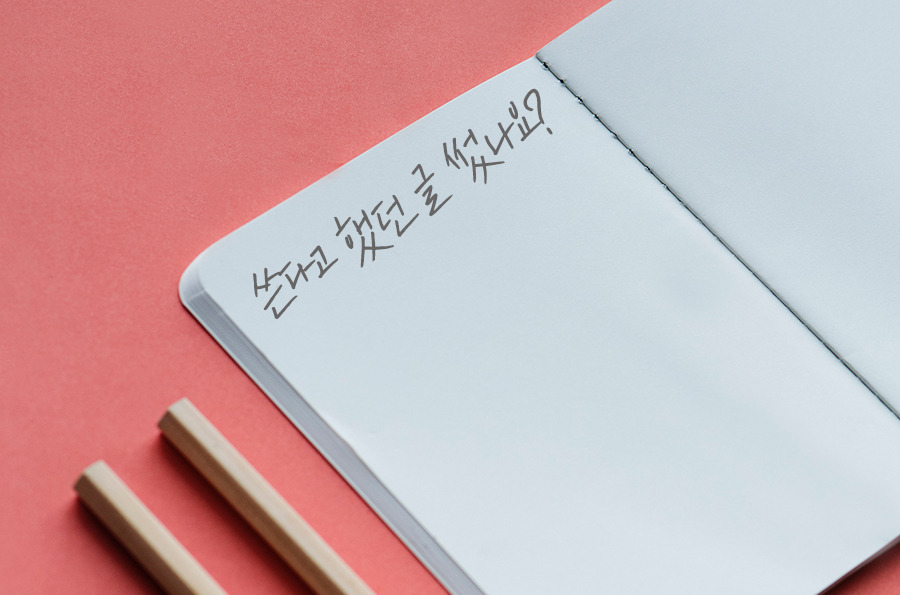 쓴다고 했던 글 썼나요?